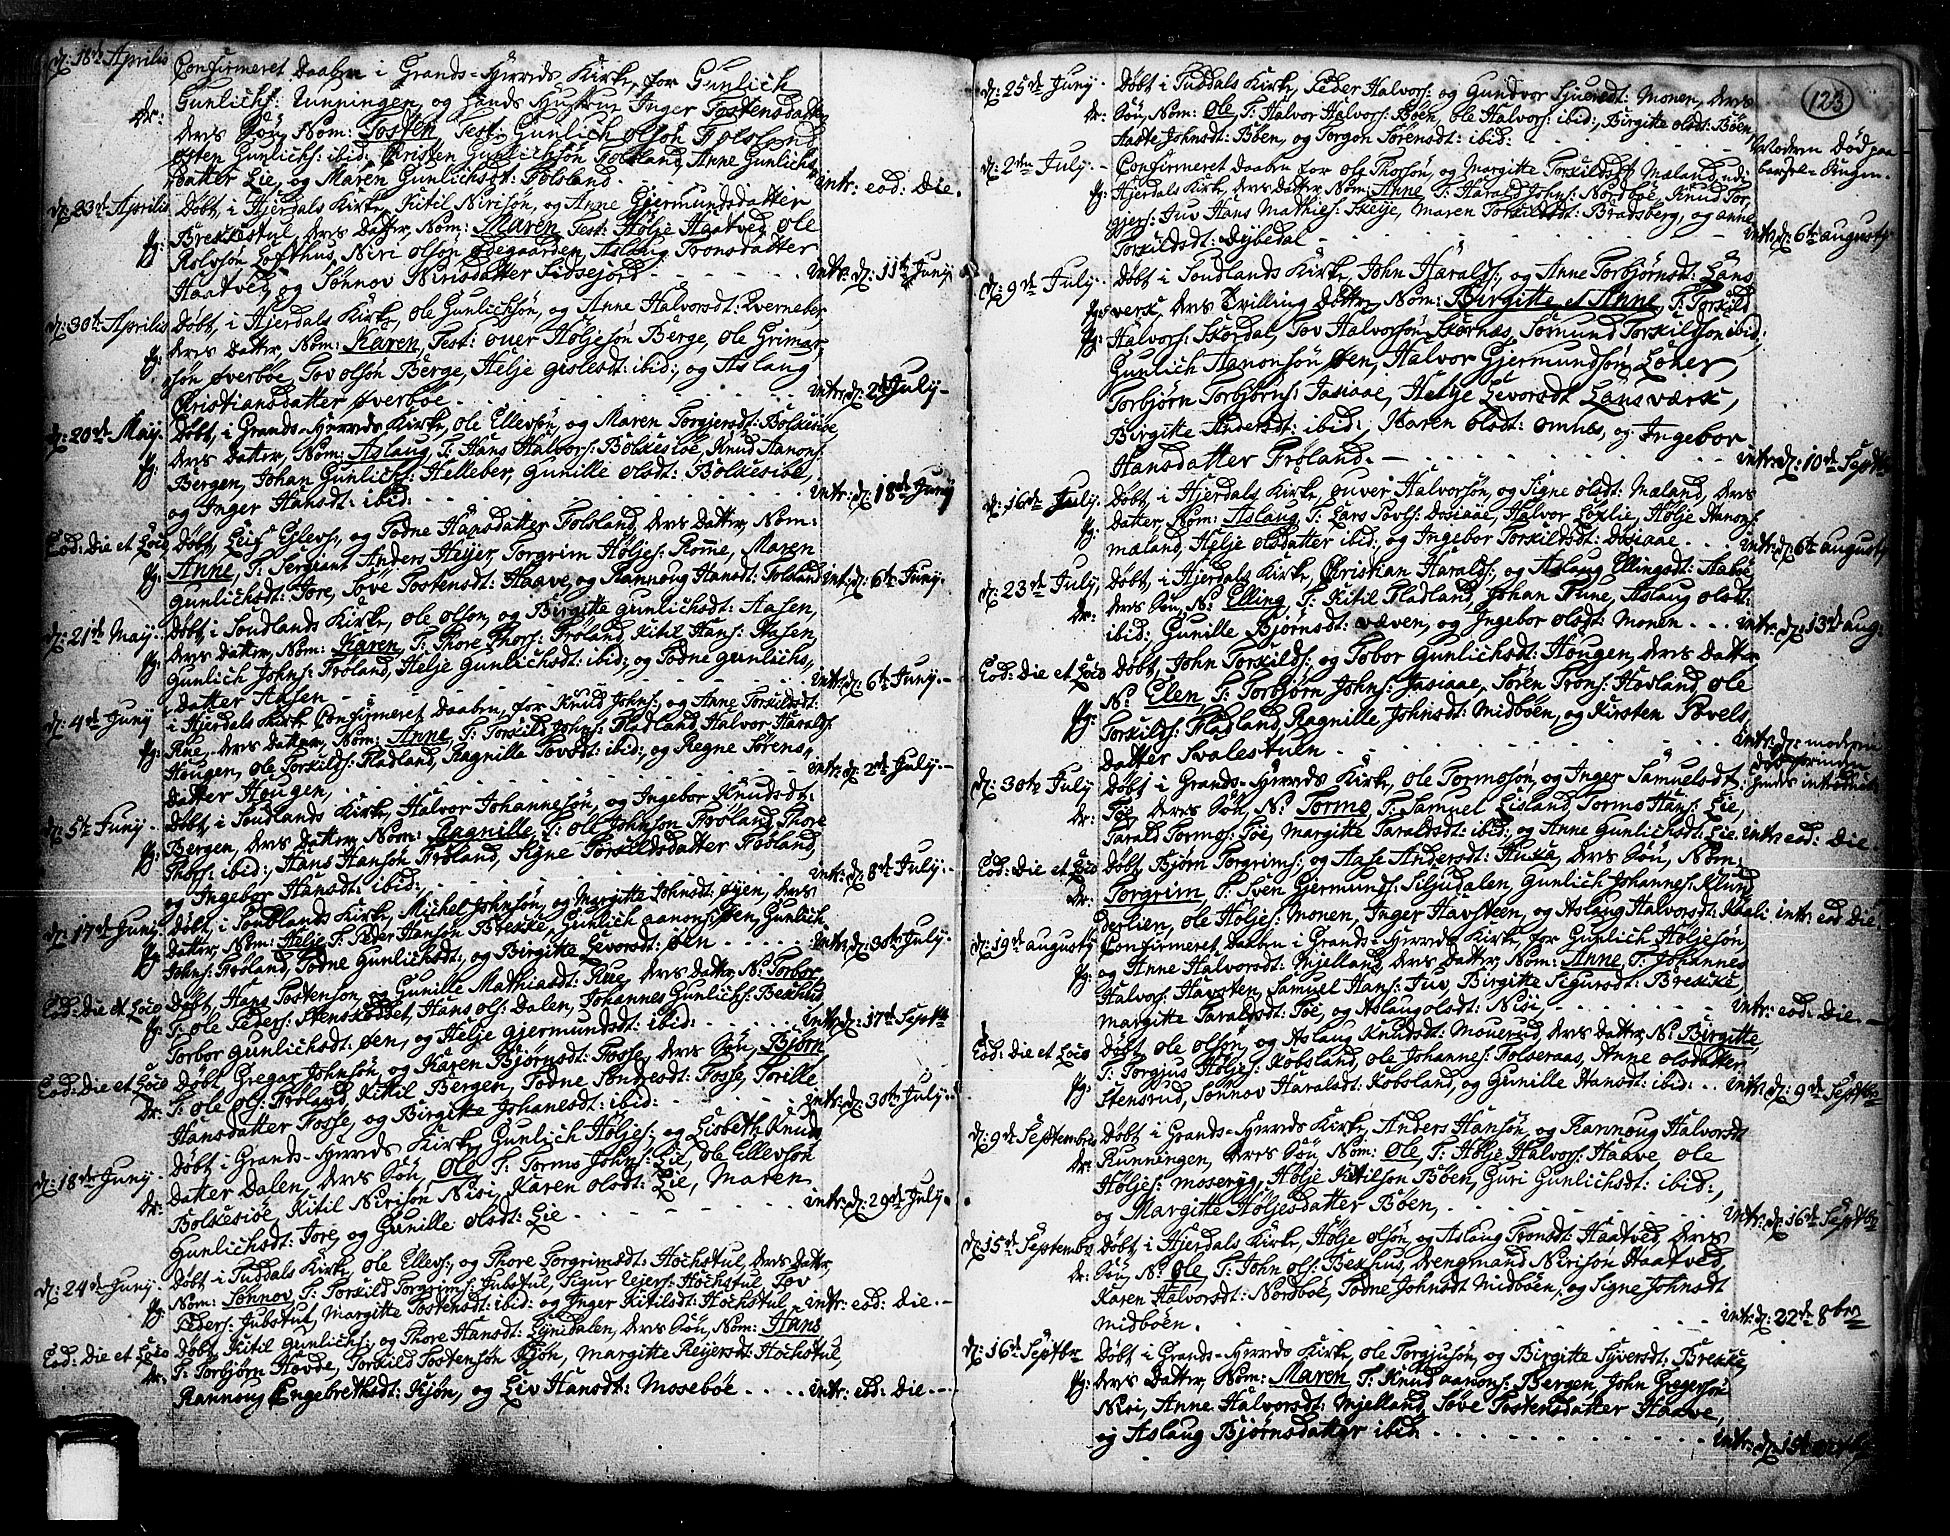 d: 18de Aprilis Confirmeret Daaben i Grands-Herreds Kirke, for Gunlich
Gunlichs: Runningen, og hands Hustru Inger Tostensdatter
dr: deris Søn, Nom: Tosten, Test: Gunlich Olsøn Folsland
Østen Gunlichs: ibid; Christen Gunlichsøn Folsland, Anne Gunlichs-
datter Lie, og Maren Gunlichsdt: Folsland. intr: eod: Die.
d: 23de Aprilis Døbt, i Hjerdals Kirke, Kitil Nirisøn, og Anne Gjermundsdatter
pg: Brekkestul, deris Datter, Nom: Maren, Test: Hølje Haatved, Ole
Rolvsøn Lofthus, Niri Olsøn Ødegaarden, Aslaug Tronsdatter
Haatved, og Sønnov Nirisdatter Lidsejord intr: d: 11te Junij
d: 30te Aprilis Døbt, i Hjerdals Kirke, Ole Gunlichsøn, og Anne Halvorsdt: Qverneber
pg: deris Datter, Nom: Karen, Test: Over Høljesøn Berge, Ole Grimar-
søn Øverbøe, Tov Olsøn Berge, Helje Gislesdt: ibid; og Aslaug
Christiansdatter Øverbøe. intr: d: 2de July.
d: 20de May. Døbt, i Grands-Herreds Kirke, Ole Ellevsøn, og Maren Torgjersdt: Bolkesiøe,
pg: deris Datter, Nom: Aslaug, T: Hans Halvors: Bolkesiøe, Knud Aanons:
Bergen, Johan Gunlichs: Helleber, Gunille Olsdt: Bolkesiøe,
og Inger Hansdt: ibid: intr: d: 18de Junij
Eod: Die et Loco Døbt, Leif Eilevs: og Todne Hansdatter Folsland, deris Datter, Nom:
pg: Anne, T: Sergiant Anders Heyer, Torgrim Høljes: Romme, Maren
Gunlichsdt: Tore, Tove Tostensdt: Haave, og Rannoug Hansdt: Folsland int: d: 6te Juny.
d: 21de May. Døbt, i Soudlands Kirke, Ole Olsøn, og Birgitte Gunlichsdt: Aasen,
pg: deris Datter, Nom: Karen, T: Thore Thors: Frøland, Kitil Hans: Aasen,
Gunlich Johns: Frøland, Helje Gunlichsdt: ibid; og Todne Gunlichs-
datter Aasen intr: d: 6te Juny.
d: 4de Juny i Hjerdals Kirke Confirmeret Daaben, for Knud Johns: og Anne Torkildsdt:
pg: Rue, deris Datter, Nom: Anne, T: Torkild Johns: Fladland, Halvor Haralds:
Hougen, Ole Torkilds: Fladland, Ragnille Tovsdt: ibid; og Regne Sørens-
datter Hougen, intr: d: 2de July.
d: 5te Juny. Døbt, i Soudlands Kirke, Halvor Johannesøn, og Ingebor Knudsdt:
pg: Bergen, deris Datter, Nom: Ragnille, T: Ole Johnsøn Frøland, Thore
Thors: ibid; Hans Hansøn Frøland, Signe Torkildsdatter Frøland,
og Ingebor Hansdt: ibid: intr: d: 8de July.
d: 17de Juny Døbt, i Soudlands Kirke, Michel Johnsøn, og Margitte Johnsdt: Øyen, deris
pg: Datter, Nom: Helje, T: Peder Hansøn Brekke, Gunlich Aanons: Øen, Gunlich
Johns: Frøland, Todne Gunlichsdt: og Birgitte Levorsdt: Øen intr: d: 30te July.
Eod: Die et Loco Døbt, Hans Tostensøn, og Gunille Mathiasdt: Rue, deris Datter, N: Torbor,
pg: T: Ole Peders: Stenskaddet, Hans Ols: Dalen, Johannes Gunlichs: Bekhus
Torbor Gunlichsdt: Øen, og Helje Gjermundsdt: ibid: intr: d: 17de Septbr
Eod: Die et Loco Døbt, Gregar Johnsøn, og Karen Bjørnsdt: Fosse, deris Søn, Bjørn
dr: T: Ole Ols: Frøland, Kitil Bergen, Todne Sondresdt: Fosse, Torille
Hansdatter Fosse, og Birgitte Johanesdt: ibid: intr: d: 30te July.
d: 18de Juny. Døbt i Grands-Herreds Kirke, Gunlich Høljes: og Lisbeth Knuds
dr: Datter Dalen, deris Søn, Ole, T: Tormo Johns: Lie, Ole Ellevsøn
Bolkesiøe, Kitil Nirisøn Nisi, Karen Olsdt: Lie, Maren
Gunlichsdt: Tore, og Gunille Olsdt: Lie intr: d: 29de July.
d: 24de Juny. Døbt i Tuddals Kirke, Ole Elless: og Thore Torgrimsdt: Hochstul, deris Datter,
pg: Nom: Sønnov, T: Torkild Torgrims: Jubstul, Sigur Vejers: Hochstul, Tov
Peders: Gubstul, Margitte Tostensdt: ibid: og Inger Kitilsdt: Hochstul intr: eod: Die.
Eod: Die et Loco Døbt, Kitil Gunlichs: og Thore Hansdt: Lynidalen, deris Søn, Nom: Hans
dr: T: Torbjørn Hovde, Torkild Tostensøn Kjøn, Margitte Reyersdt: Hochstul,
Rannoug Engebrethsdt: Kjøn, og Liv Hansdt: Mosebøe intr: eod: Die.
123
d: 25de Juny. Døbt i Tuddals Kirke, Peder Halvors: og Gundvor Sjuersdt: Monen, deris
dr: Søn, Nom: Ole, T: Halvor Halvors: Bøen, Ole Halvors: ibid:, Birgitte Olsdt: Bøen,
Aadte Johnsdt: Bøen, og Torgon Sørensdt: ibid: Moderen Død paa
barsel-Sengen.
d: 2den July. Confirmeret Daaben for Ole Thorsøn, og Margitte Torkildsdt: Mæland, udi
pg: Hjerdals Kirke, deris Datter, Nom: Anne, T: Harald Johns: Nordbøe, Knud Tor-
gjers: Juv, Hans Mathies: Skeje, Maren Torkildsdt: Bradsberg, og Anne
Torkildsdt: Dybedal intr: d: 6te augusty.
d: 9de July. Døbt i Soudlands Kirke, John Haralds:, og Anne Torbjørnsdt: Lans
pg: verk, deris Tvilling Døttre, Nom: Birgitte et Anne, T: Torkild
pg: Halvors: Skordal, Tov Halvorsøn Skornæs, Sømund Torkilsøn ibid;
Gunlich Aanonsøn Øen, Halvor Gjermundsøn Loner,
Torbjørn Torbjørns: Jasiaae, Helje Levorsdt Lansværk,
Birgitte Andersdt: ibid:, Karen Olsdt: Omnes, og Ingebor
Hansdatter Frøland. intr: d: 10de Septbr
d: 16de July. Døbt i Hjerdals Kirke, Ouver Halvorsøn, og Signe Olsdt: Mæland, deris
pg: Datter, Nom: Aslaug, T: Lars Povls: Dosiaae, Halvor Loxlie, Hølje Aanons:
Mæland, Helje Olsdatter ibid: og Ingebor Torkildsdt: Dosiaae. intr: d: 6te augusty
d: 23de July, Døbt i Hjerdals Kirke, Christian Haralds:, og Aslaug Ellingsdt: Aabøe,
dr: deris Søn, N: Elling, T: Kitil Fladland, Johan Tune, Aslaug Olsdt:
ibid: Gunille Bjørnsdt: Væven, og Ingebor Olsdt: Monen intr: d: 13de aug:
Eod: Die et Loco Døbt, John Torkilds: og Tobor Gunlichsdt: Hougen, deris Datter
pg: N: Elen, T: Torbjørn Johns: Jasiaae, Søren Trons: Hovland, Ole
Torkilds: Fladland, Ragnille Johnsdt: Midbøen, og Kirsten Povels
datter Svalestuen intr: d: moderen
død førmen
hindes introduct:
d: 30te July Døbt i Grands-Herreds Kirke, Ole Tormosøn, og Inger Samuelsdt:
dr: Foe, deris Søn, N: Tormo, T: Samuel Lisland, Tormo Hans: Lie,
Tarald Tormos: Foe, Margitte Taraldsdt: ibid:, og Anne Gunlichsdt: Lie intr: eod: Die.
Eod: Die et Loco Døbt, Bjørn Torgrims: og Aase Andersdt: Huke, deris Søn, Nom:
dr: Torgrim, T: Sven Gjermunds: Siljudalen, Gunlich Johannes: Klund
derlien, Ole Høljes: Monen, Inger Havsteen, og Aslaug Halvorsdt: Kaali intr: eod: Die.
d: 19de augusty Confirmeret Daaben i Grands-Herreds Kirke, for Gunlich Høljesøn,
pg: og Anne Halvorsdt: Mjelland, deris Datter, Nom: Anne, T: Johannes
Halvors: Havsten, Samuel Hans: Juv, Birgitte Sigursdt: Brekke
Margitte Taraldsdt: Foe, og Aslaug Olsdt: Nisi, intr: eod: Die.
Eod: Die et Loco Døbt, Ole Olsøn, og Aslaug Knudsdt: Mouerud, deris Datter, N: Birgitte,
pg: T: Torgjus Høljes: Kobsland, Ole Johannes: Folseraas, Anne Olsdatter
Stensrud, Sønnov Haralsdt: Kobsland, og Gunille Hansdt: ibid: intr: d: 9de Septbr
d: 9de Septembris Døbt i Grands-Herreds Kirke, Anders Hansøn, og Rannoug Halvorsdt
dr: Runningen, deris Søn, Nom: Ole, T: Hølje Halvors: Haave, Ole
Høljes: Moserøg, Hølje Kitilsøn Bøen, Guri Gunlichsdt: ibid:,
og Margitte Høljesdatter Bøen, intr: d: 16de Septbr
d: 15de Septembr Døbt i Hjerdals Kirke, Hølje Olsøn, og Aslaug Tronsdt: Haatved, deris
dr: Søn, N: Ole, T: John Ols: Bekhus, Drengmand Nirisøn Haatved,
Karen Halvorsdt: Nordbøe, Todne Johnsdt Midbøen, og Signe Johnsdt
Midbøen. intr: d: 22de 8br
d: 16de Septbr Døbt i Grands-Herreds Kirke, Ole Torgjusøn, og Birgitte Syversdt: Brekke,
pg: deris Datter, Nom: Maren, T: Knud Aanons: Bergen, John Gregersøn
Nisi, Anne Halvorsdt: Mjelland, Tove Tostensdatter Haave,
og Aslaug Bjørnsdatter ibid: intr: d: 15de